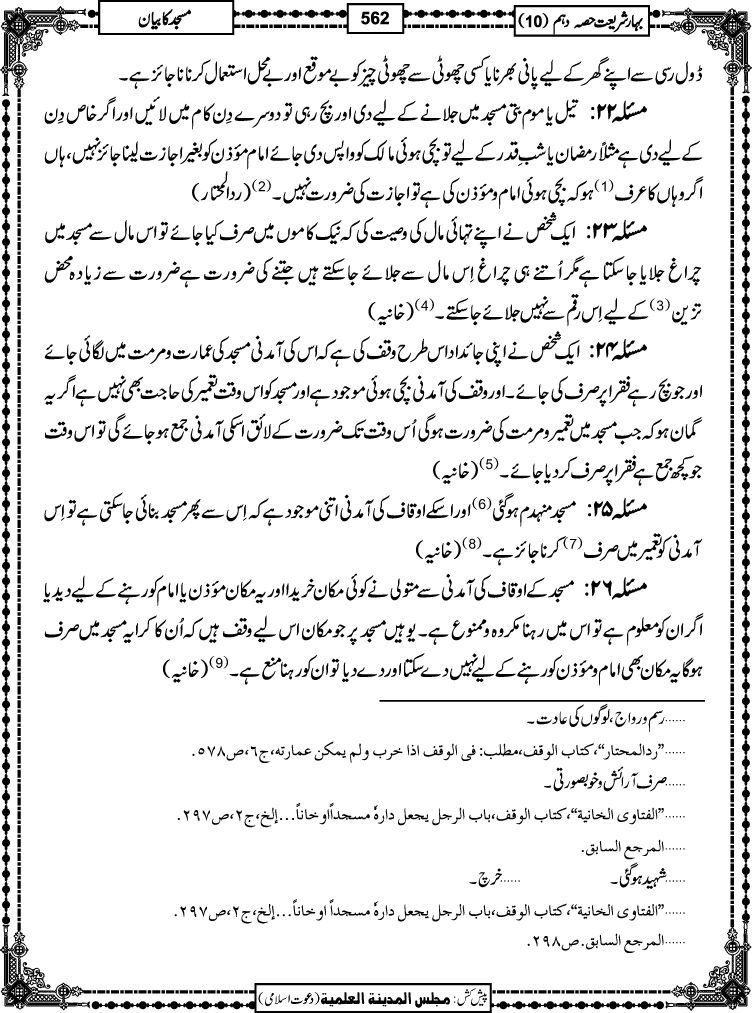 بہارِ شریعت حصہ دہم (10)
562
مسجد کا بیان
ڈول رسی سے اپنے گھر کے لیے پانی بھرنا یا کسی چھوٹی سے چھوٹی چیز کو بے موقع اور بے محل استعمال کرنا ناجائز ہے۔
مسئلہ ۲۲: تیل یا موم بتی مسجد میں جلانے کے لیے دی اور بچ رہی تو دوسرے دِن کام میں لائیں اور اگر خاص دِن
کے لیے دی ہے مثلاً رمضان یا شبِ قدر کے لیے تو بچی ہوئی مالک کو واپس دی جائے امام مؤذن کو بغیر اجازت لینا جائز نہیں، ہاں
اگر وہاں کا عرف (1) ہو کہ بچی ہوئی امام و مؤذن کی ہے تو اجازت کی ضرورت نہیں۔ (2) (ردالمحتار)
مسئلہ ۲۳: ایک شخص نے اپنے تہائی مال کی وصیت کی کہ نیک کاموں میں صرف کیا جائے تو اس مال سے مسجد میں
چراغ جلایا جاسکتا ہے مگر اُتنے ہی چراغ اِس مال سے جلائے جاسکتے ہیں جتنے کی ضرورت ہے ضرورت سے زیادہ محض
تزین (3) کے لیے اِس رقم سے نہیں جلائے جاسکتے۔ (4) (خانیہ)
مسئلہ ۲۴: ایک شخص نے اپنی جائداد اس طرح وقف کی ہے کہ اس کی آمدنی مسجد کی عمارت و مرمت میں لگائی جائے
اور جو بچ رہے فقرا پر صرف کی جائے۔ اور وقف کی آمدنی بچی ہوئی موجود ہے اور مسجد کو اس وقت تعمیر کی حاجت بھی نہیں ہے اگر یہ
گمان ہو کہ جب مسجد میں تعمیر و مرمت کی ضرورت ہوگی اُس وقت تک ضرورت کے لائق اسکی آمدنی جمع ہو جائے گی تو اس وقت
جو کچھ جمع ہے فقرا پر صرف کر دیا جائے۔ (5) (خانیہ)
مسئلہ ۲۵: مسجد منہدم ہوگئی (6) اور اسکے اوقاف کی آمدنی اتنی موجود ہے کہ اِس سے پھر مسجد بنائی جاسکتی ہے تو اِس
آمدنی کو تعمیر میں صرف (7) کرنا جائز ہے۔ (8) (خانیہ)
مسئلہ ۲۶: مسجد کے اوقاف کی آمدنی سے متولی نے کوئی مکان خریدا اور یہ مکان مؤذن یا امام کو رہنے کے لیے دیدیا
اگر ان کو معلوم ہے تو اس میں رہنا مکروہ و ممنوع ہے۔ یوہیں مسجد پر جو مکان اس لیے وقف ہیں کہ اُن کا کرایہ مسجد میں صرف
ہوگا یہ مکان بھی امام و مؤذن کو رہنے کے لیے نہیں دے سکتا اور دے دیا تو ان کو رہنا منع ہے۔ (9) (خانیہ)
......رسم و رواج، لوگوں کی عادت۔
......”ردالمحتار“، کتاب الوقف، مطلب: فی الوقف اذا خرب ولم یمکن عمارتہ، ج٦، ص٥٧٨.
......صرف آرائش و خوبصورتی۔
......”الفتاوی الخانیة“، کتاب الوقف، باب الرجل یجعل دارہٗ مسجداً او خاناً...إلخ، ج٢، ص٢٩٧.
......المرجع السابق.
......شہید ہوگئی۔ ......خرچ۔
......”الفتاوی الخانیة“، کتاب الوقف، باب الرجل یجعل دارہٗ مسجداً او خاناً...إلخ، ج٢، ص٢٩٧.
......المرجع السابق. ص٢٩٨.
پیش کش: مجلس المدينة العلمية (دعوت اسلامی)